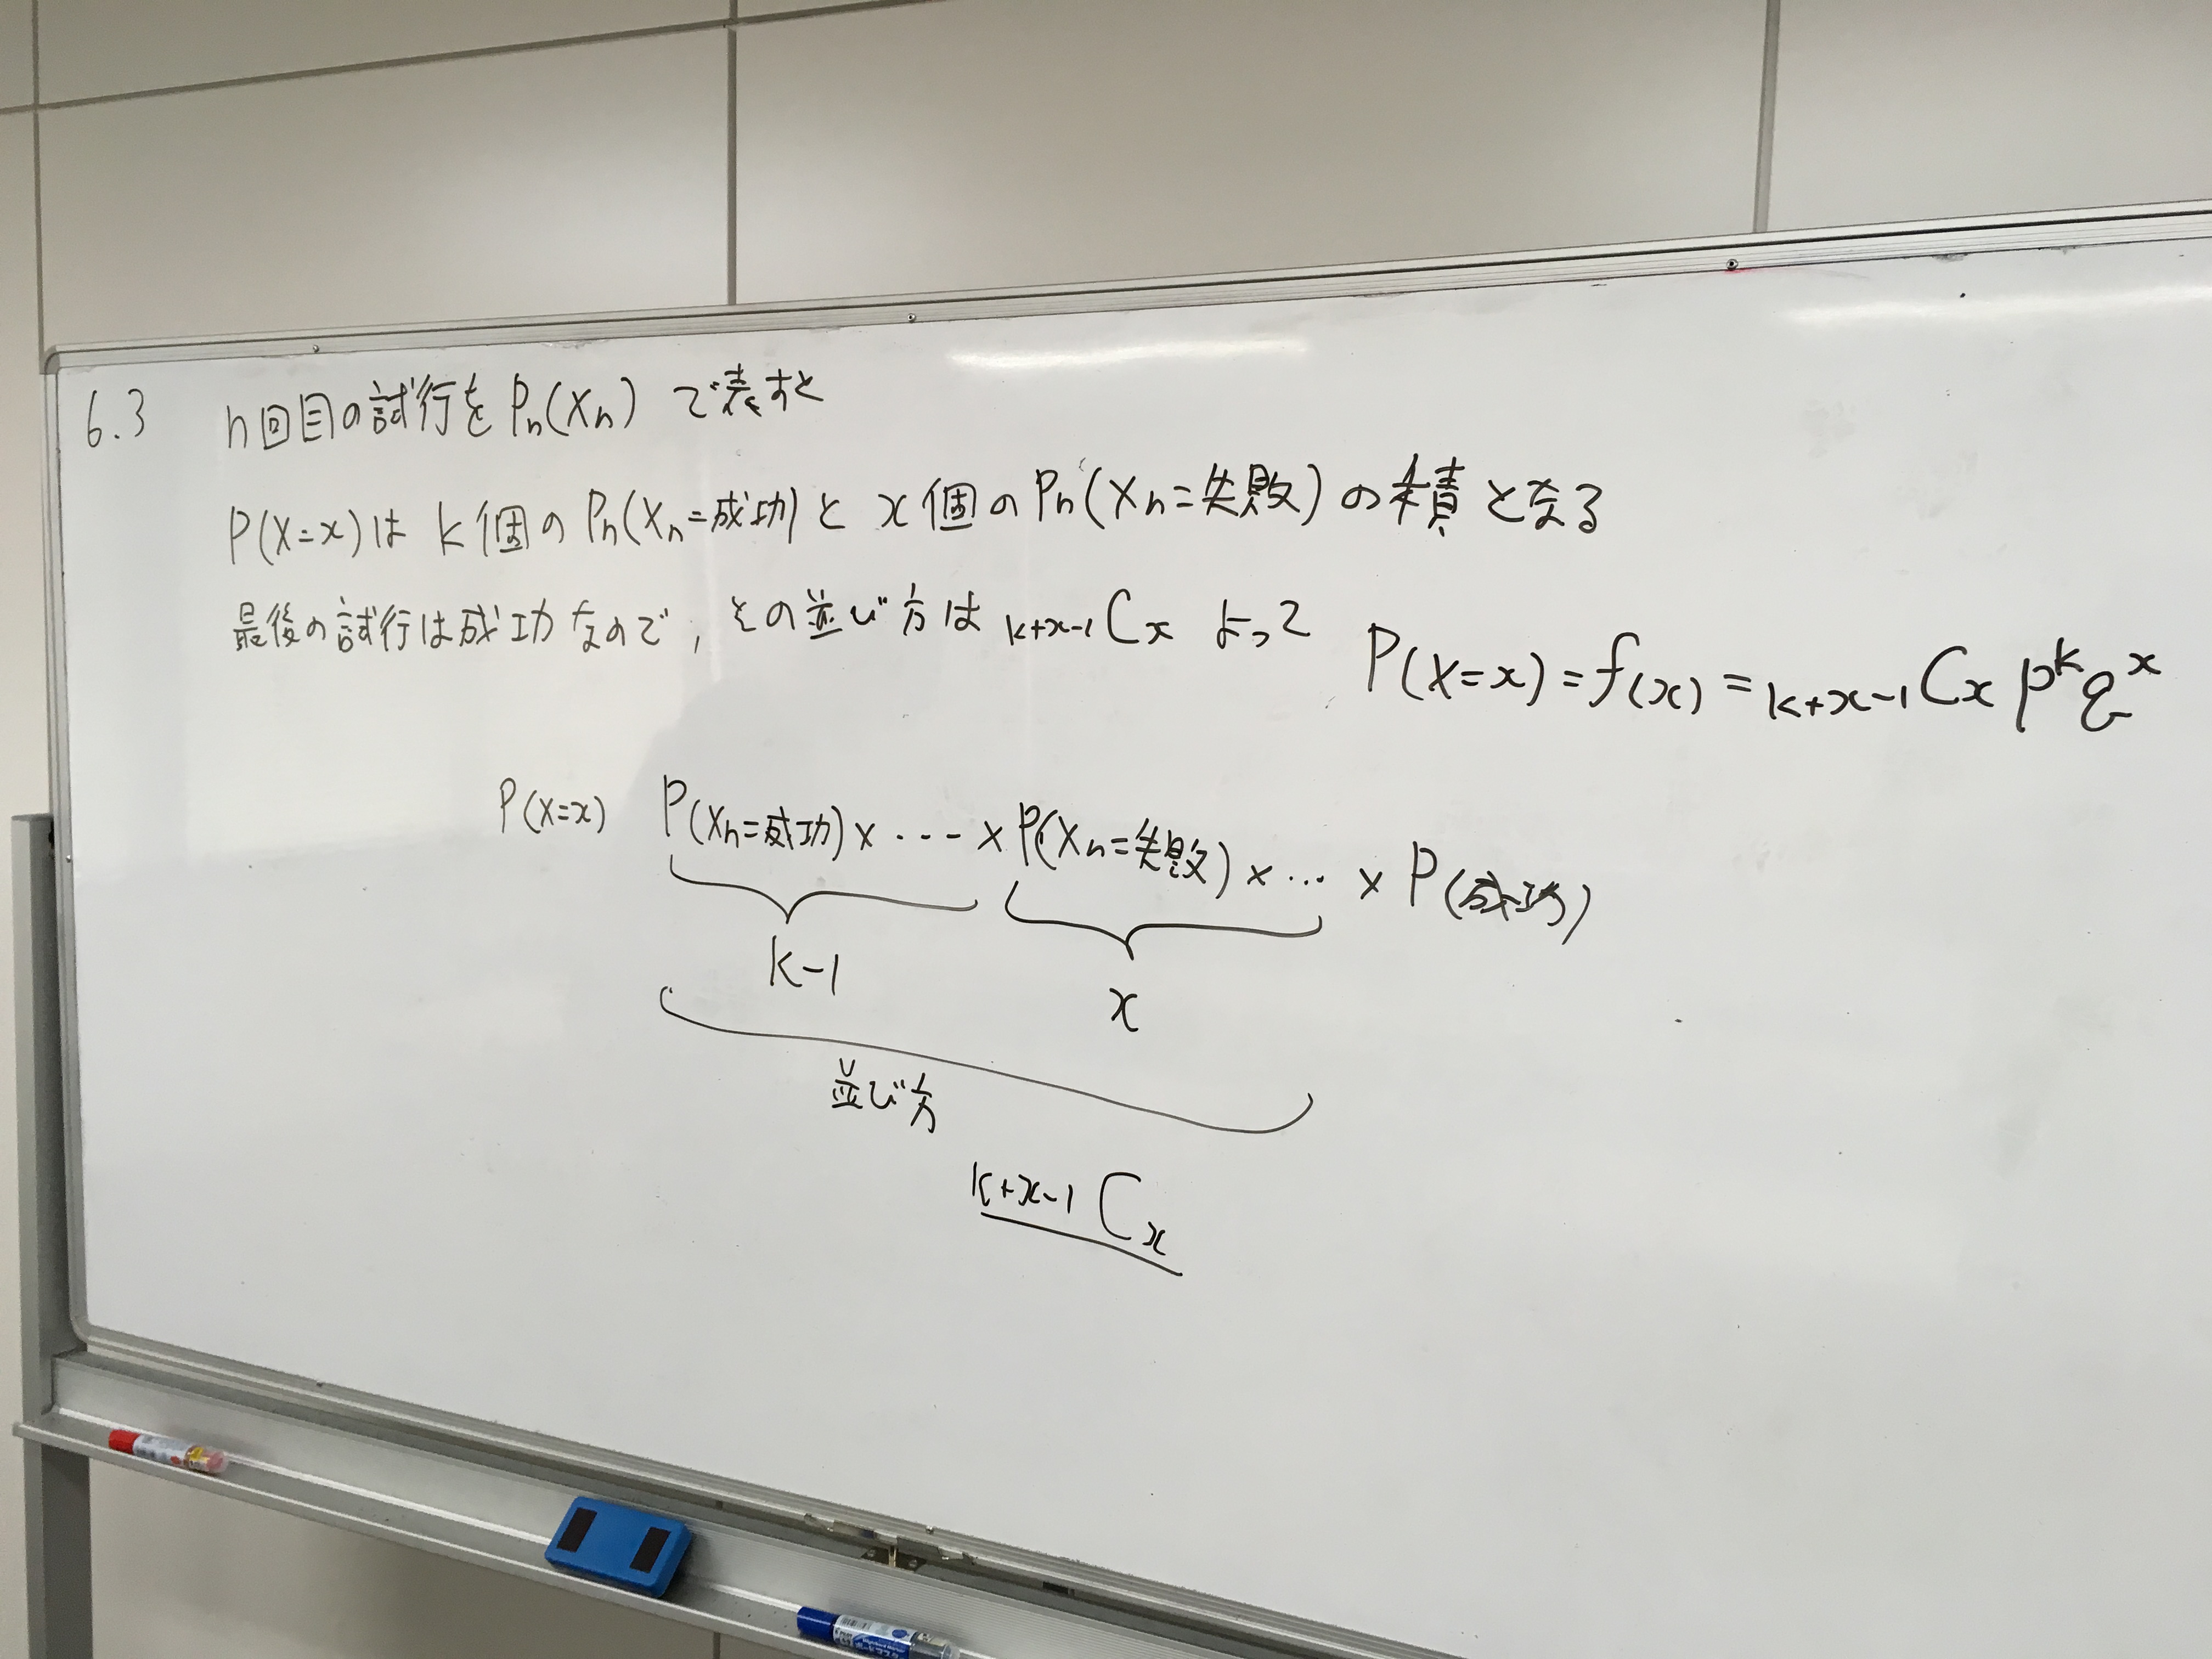 6.3 n回目の試行を Pn(Xn) で表すと
P(X=x)は k個の Pn(Xn=成功)と x個の Pn(Xn=失敗)の積となる
最後の試行は成功なので, その並び方は k+x-1Cx よって
P(X=x)=f(x)=k+x-1Cx p^k q^x
P(X=x) P(Xn=成功)×・・・×P(Xn=失敗)×・・・×P(成功)
k-1
x
並び方
k+x-1Cx